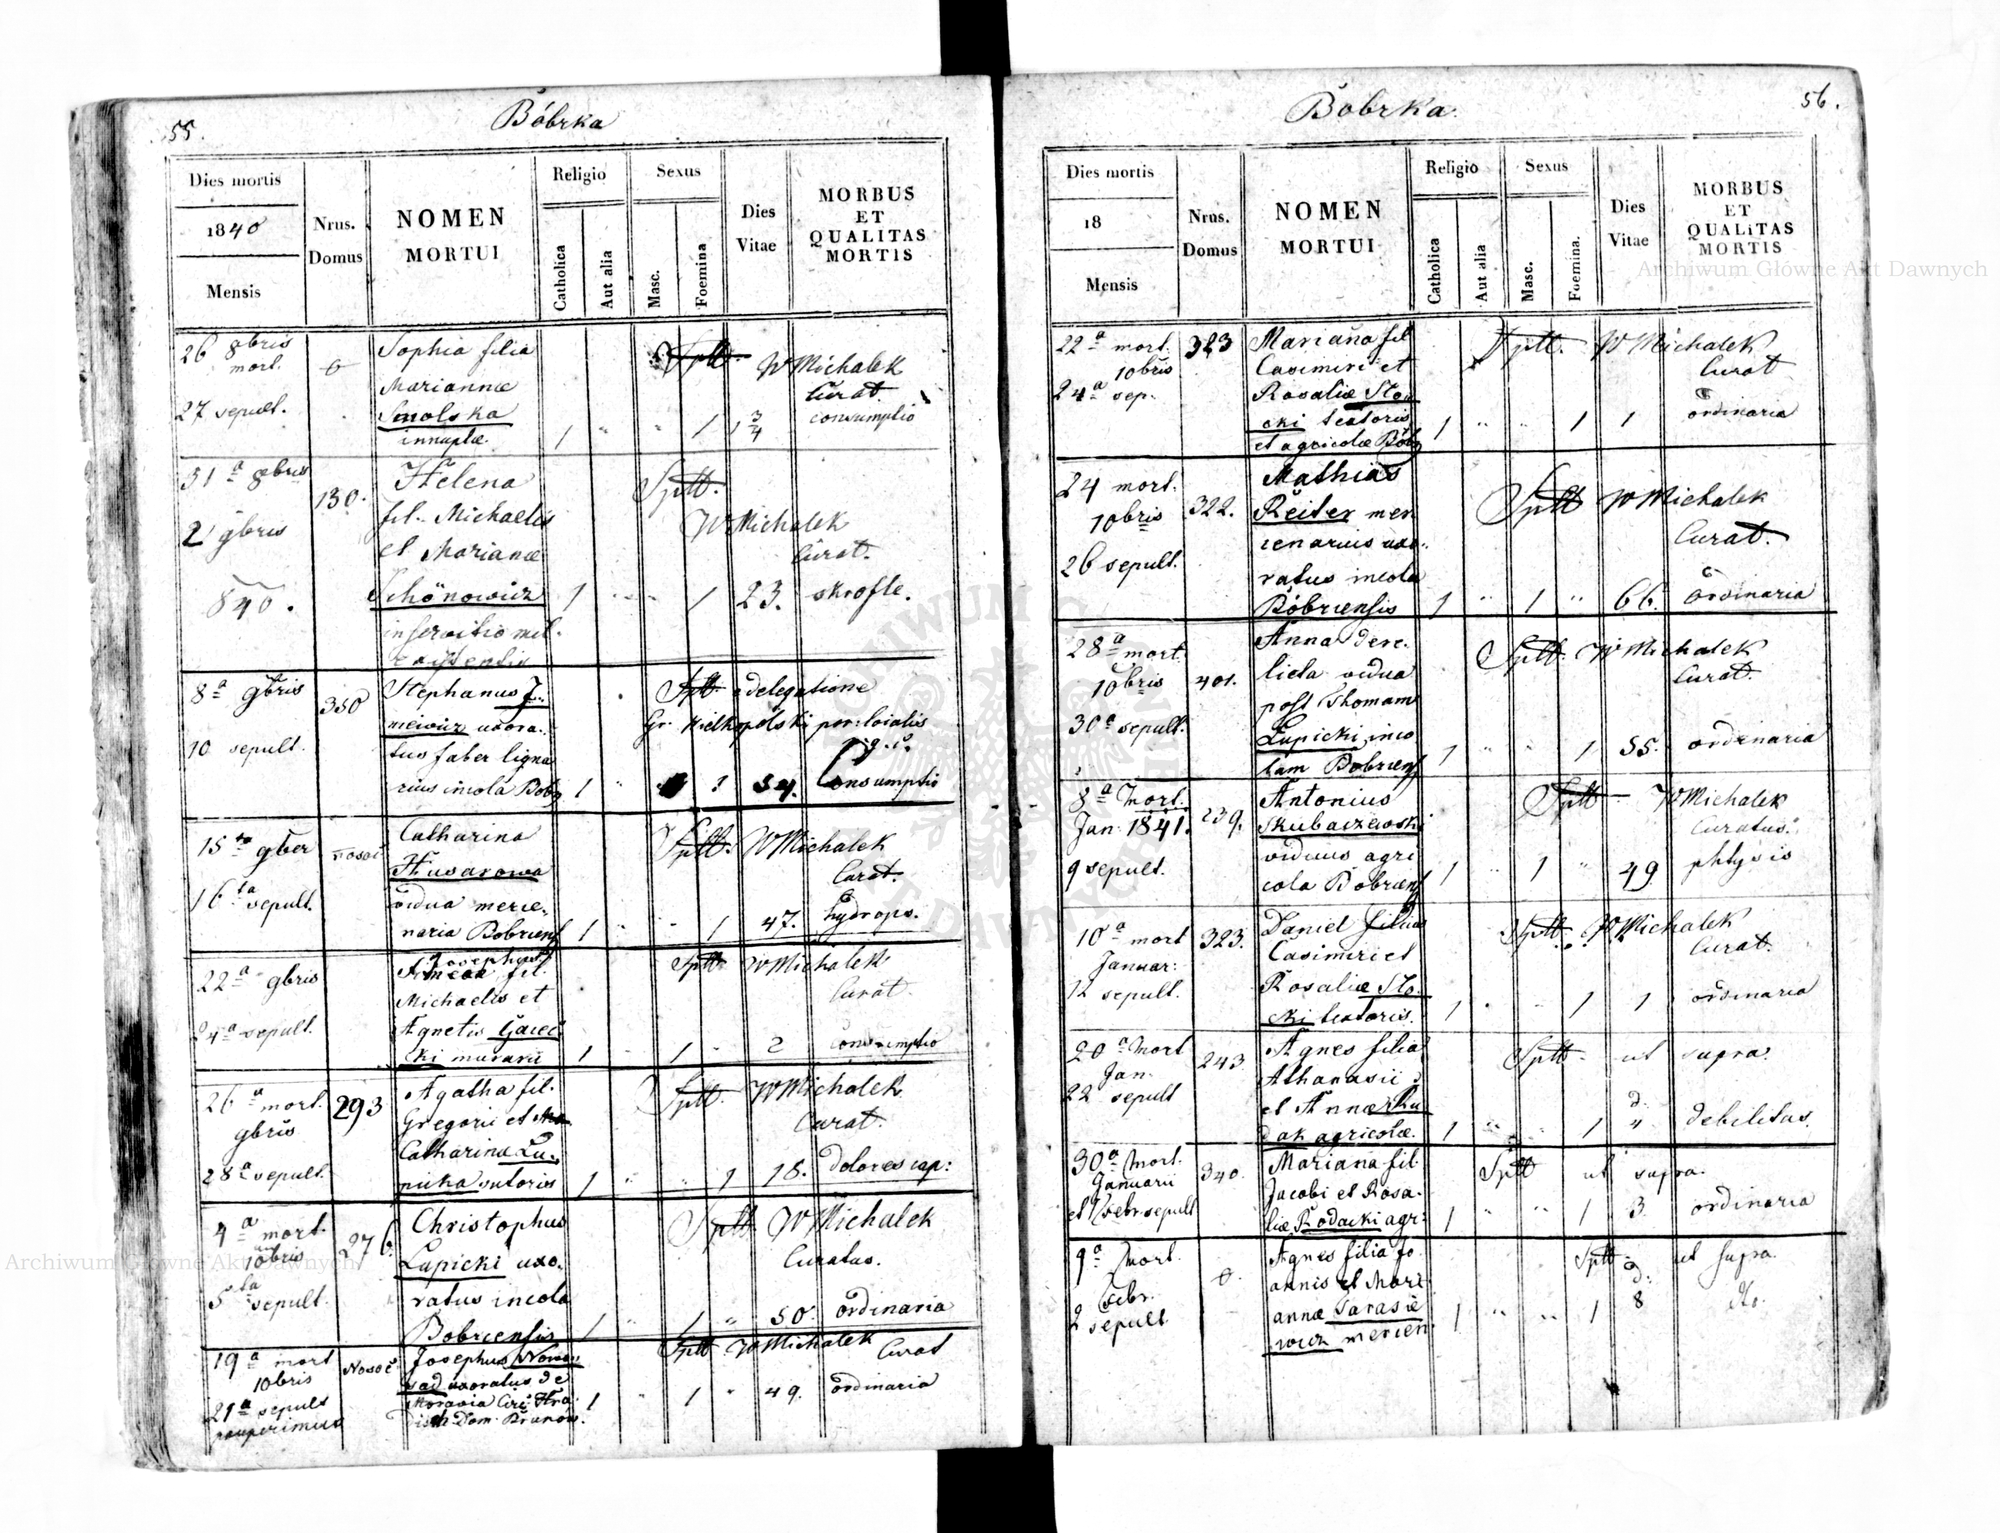 55.
Bóbrka
Dies mortis
1840
Mensis
Nrus.
Domus
NOMEN
MORTUI
Religio
Catholica
Aut alia
Sexus
Masc.
Foemina
Dies
Vitae
MORBUS
ET
QUALITAS
MORTIS
26 8bris
mort.
27 sepult.
0
Sophia filia
Mariannæ
Smolska
innuptæ
1 " 1 1 3/4
Sptt. W Michalek
Curat.
consumptio
31a 8bris
2 9bris
840.
130.
Helena
fil. Michaelis
et Marianæ
Schönowicz
in servitio mil.
existentis
1 1 23.
Sptt.
W Michalek
Curat.
skrofle.
8a 9bris
10 sepult.
350
Stephanus
uxora-
tus faber ligna
rius incola Bobr
1 1 54.
Sptt. e delegatione
Consumptio
15ta 9ber
16ta sepult.
Catharina
Husarowa
vidua merce-
naria Bobrcens
1 1 47.
Sptt. W Michalek
Curat.
hydrops.
22a 9bris
24a sepult.
Josephus
fil.
Michaelis et
Agnetis Gaiec
ki murarii
1 1 2
Sptt. W Michalek
Curat.
consumptio
26a mort.
9bris
28a sepult.
293
Agatha fil.
Gregorii et
Catharina Łu-
picka sutoris
1 " " 1 18.
Sptt. W Michalek
Curat.
dolores cap:
4a mort.
10bris
5ta sepult.
276.
Christophus
Łupicki uxo.
ratus incola
Bobrcensis
1 1 " 50.
Sptt W Michalek
Curatus.
ordinaria
19a mort
10bris
21a sepult
pauperimus
Nosoc
Josephus
sad uxoratus de
Moravia Circ: Hra
disch Dom. Brunow.
1 " 1 " 49.
Sptt W Michalek
Curat
ordinaria
56.
Bobrka.
Dies mortis
18
Mensis
Nrus.
Domus
NOMEN
MORTUI
Religio
Catholica
Aut alia
Sexus
Masc.
Foemina.
Dies
Vitae
MORBUS
ET
QUALITAS
MORTIS
22a mort.
10bris
24a sep.
323
Mariana fil
Casimiri et
Rosaliæ Sto-
cki textoris
et agricolæ Bóbr
1 " " 1 1
Sptt. W Michalek
Curat
ordinaria
24 mort.
10bris
26 sepult.
322.
Mathias
Reiter mer
cenarius uxo-
ratus incola
Bóbrcensis
1 " 1 " 66.
Sptt W Michalek
Curat.
ordinaria
28a mort.
10bris
30a sepult.
401.
Anna dere-
licta vidua
post Thomam
Łupicki inco
lam Bobrcens
1 " " 1 55.
Sptt. W Michalek
Curat.
ordinaria
8a Mort.
Jan. 1841.
9 sepult.
239.
Antonius
Skubaczewski
viduus agri
cola Bobrcens
1 1 " 49
Sptt W Michalek
Curatus.
phtysis
10a mort
Januar:
12 sepult.
323.
Daniel filius
Casimiri et
Rosaliæ Sto-
cki textoris.
1 " " 1 1
Sptt. W Michalek
Curat.
ordinaria
20a Mort
Jan.
22 sepult
243.
Agnes filia
Athanasii
et Annæ Ru
dak agricolæ.
1 " " 1 d. 4
Sptt. ut supra.
debilitas.
30a Mort.
Januarii
et 1 Febr. sepult
340.
Mariana fil.
Jacobi et Rosa-
liæ Rodacki agr:
1 " " 1 3.
Sptt ut supra.
ordinaria
9a Mort.
Febr.
2 sepult
0.
Agnes filia Jo
annis et Mari
annæ Tarasie
wicz mercen.
1 " " 1 d. 8
Sptt ut supra.
dto.
Archiwum Główne Akt Dawnych
Archiwum Główne Akt Dawnych
ARCHIWUM GŁÓWNE AKT DAWNYCH